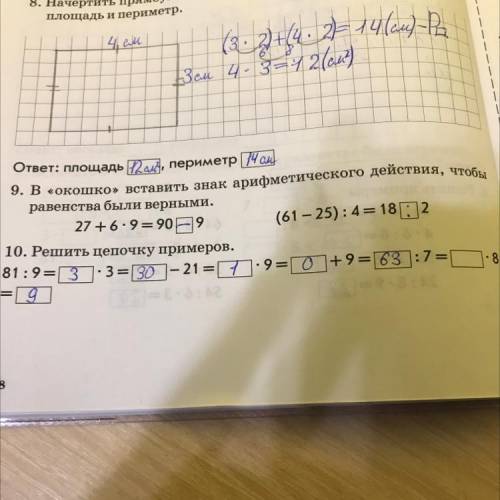 8. Начертить
площадь и периметр.
4 см
(3 · 2)+(4 · 2)=14(см)-P
6 8
3 см 4 · 3=12(см²)
Ответ: площадь 12 см², периметр 14 см
9. В «окошко» вставить знак арифметического действия, чтобы
равенства были верными.
27 + 6 · 9 = 90 – 9 (61 – 25) : 4 = 18 : 2
10. Решить цепочку примеров.
81 : 9 = 3 · 3 = 30 – 21 = 1 · 9 = 0 + 9 = 63 : 7 = · 8
= 9
8